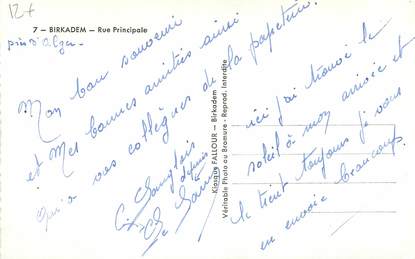 12+
7 — BIRKADEM — Rue Principale
près d'Alger
Mon bon souvenir
et Mes bonnes amitiés ainsi
qu'à vos collègues de la papeterie.
ici j'ai trouvé le
soleil à mon arrivée et
le tient toujours je vous
en envoie beaucoup.
Kiosque FALLOUR — Birkadem
Véritable Photo au Bromure - Reprod. Interdite